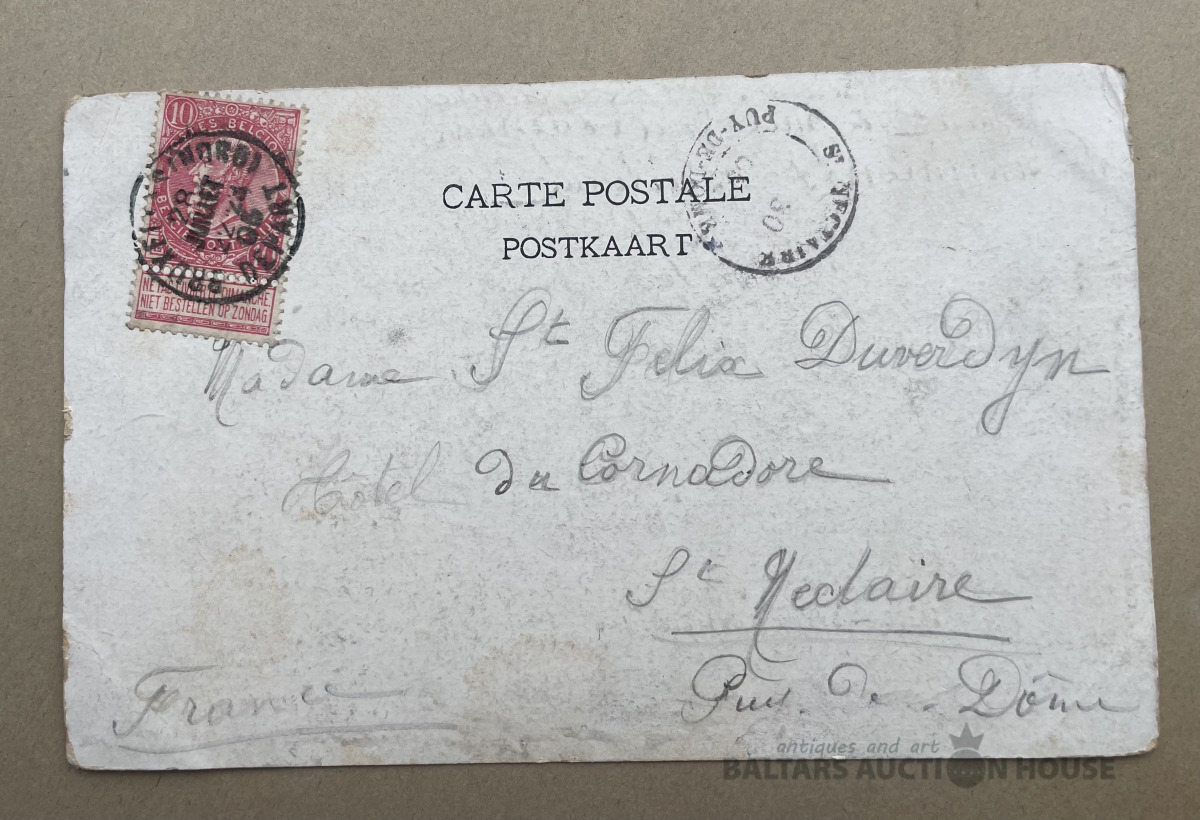 10
POSTES BELGIQUE
NE PAS LIVRER LE DIMANCHE
NIET BESTELLEN OP ZONDAG
DEPART
28
1903
ST NECTAIRE
PUY-DE-DOME
30
CARTE POSTALE
POSTKAART
Madame St Felix Duverdyn
Hôtel du Cornadore
St Nectaire
Puy. de - Dôme
France
antiques and art
BALTARS AUCTION HOUSE